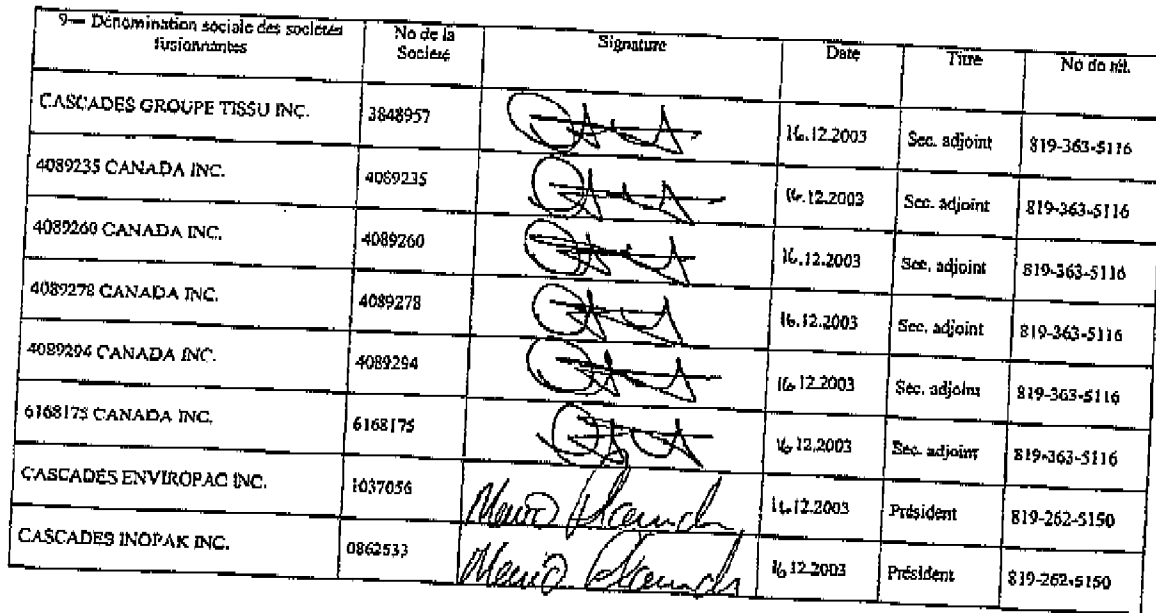 9— Dénomination sociale des sociétés fusionnantes | No de la Société | Signature | Date | Titre | No de tél.
CASCADES GROUPE TISSU INC. | 3848957 | 16.12.2003 | Sec. adjoint | 819-363-5116
4089235 CANADA INC. | 4089235 | 16.12.2003 | Sec. adjoint | 819-363-5116
4089260 CANADA INC. | 4089260 | 16.12.2003 | Sec. adjoint | 819-363-5116
4089278 CANADA INC. | 4089278 | 16.12.2003 | Sec. adjoint | 819-363-5116
4089294 CANADA INC. | 4089294 | 16.12.2003 | Sec. adjoint | 819-363-5116
6168175 CANADA INC. | 6168175 | 16.12.2003 | Sec. adjoint | 819-363-5116
CASCADES ENVIROPAC INC. | 1037056 | 16.12.2003 | Président | 819-262-5150
CASCADES INOPAK INC. | 0862533 | 16.12.2003 | Président | 819-262-5150